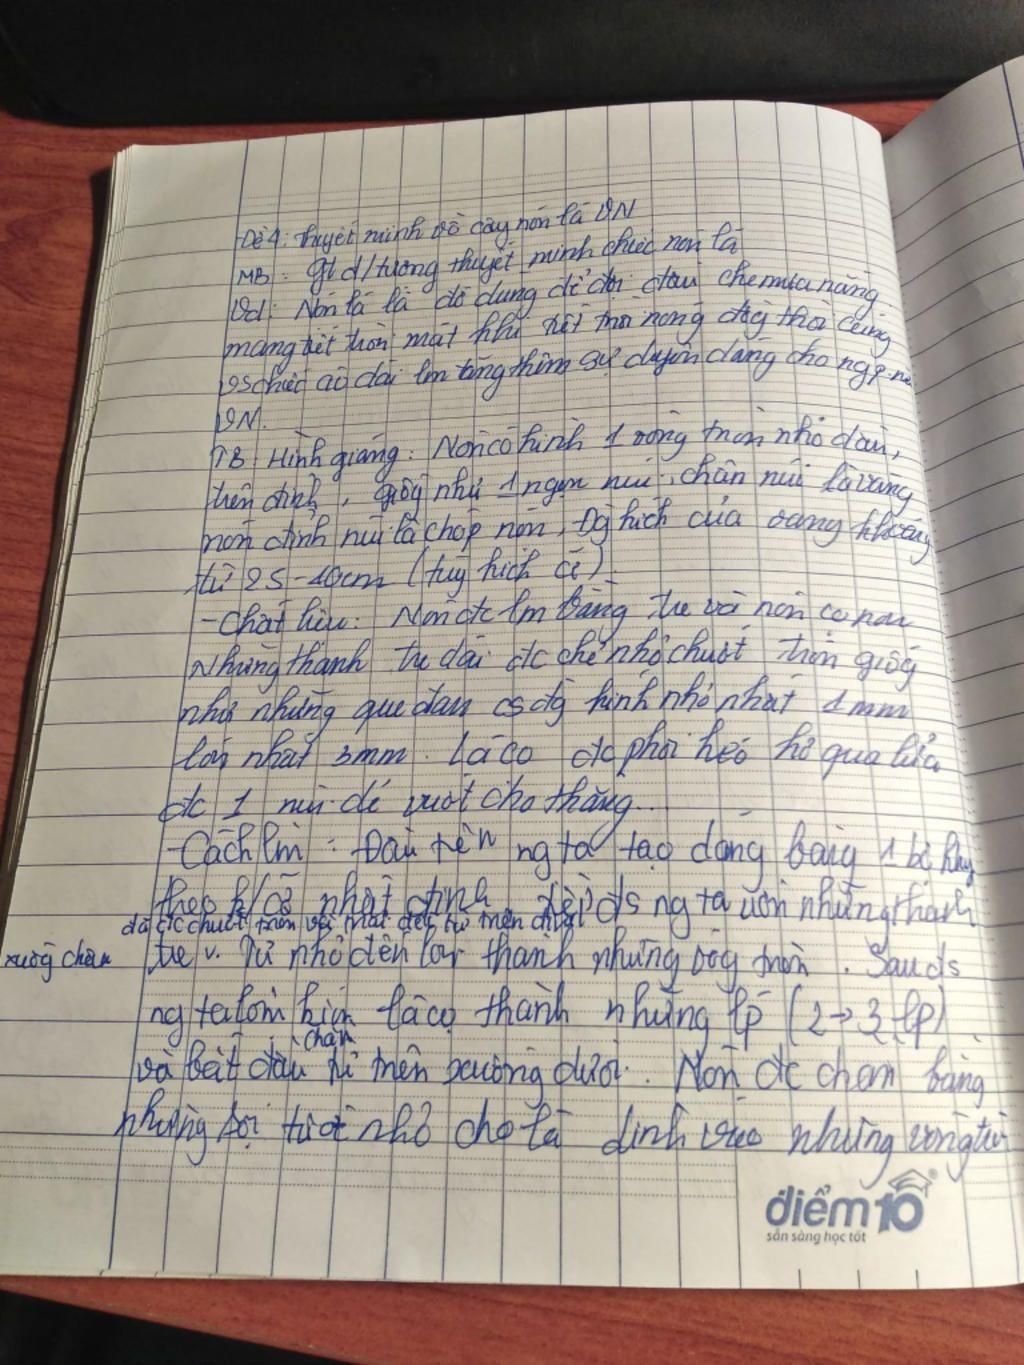 Đề 4: Thuyết minh về cây nón lá VN
MB: gt đ/tương thuyết minh chiếc nón lá
Vd: Nón lá là đồ dùng để đội đầu che mưa nắng
mang tiết mát khi tiết trời nóng đồg thời cùng
vs chiếc áo dài lm tăng thêm sự duyên dáng cho ng p.nữ
VN.
TB: Hình giáng: Nón có hình 1 vòng tròn nhỏ dần,
trên đỉnh, giốg như 1 ngọn núi, chân núi là vàng
nón đỉnh núi là chóp nón, Đg kích của vàng khoảg
từ 25-40cm (tuỳ kích cỡ)
- Chất liệu: Nón đc lm bằng tre và nón cọ non
Những thanh tre dài đc chẻ nhỏ chuốt tròn giốg
như những que đan cs đg kính nhỏ nhất 1mm
lớn nhất 3mm. Lá cọ đc phơi héo hơ qua lửa
đc 1 núi để vuốt cho thẳng...
- Cách lm: Đầu tiên ng ta tạo dáng bằng 1 bộ khug
theo k/cỡ nhất định tiếp ds ng ta uốn những thanh
đã đc chuốt tròn và mài đều từ trên đỉnh
xuốg chân
tre v. Từ nhỏ đến lớn thành những vòg tròn. Sau ds
ng ta lợm kín lá cọ thành những lp (2→3 lp)
chăn
và bắt đầu từ trên xuống dưới. Nón đc chằm bằng
những sợi tươi nhỏ cho lá dính vào những vòng tre
điểm10
sẵn sàng học tốt